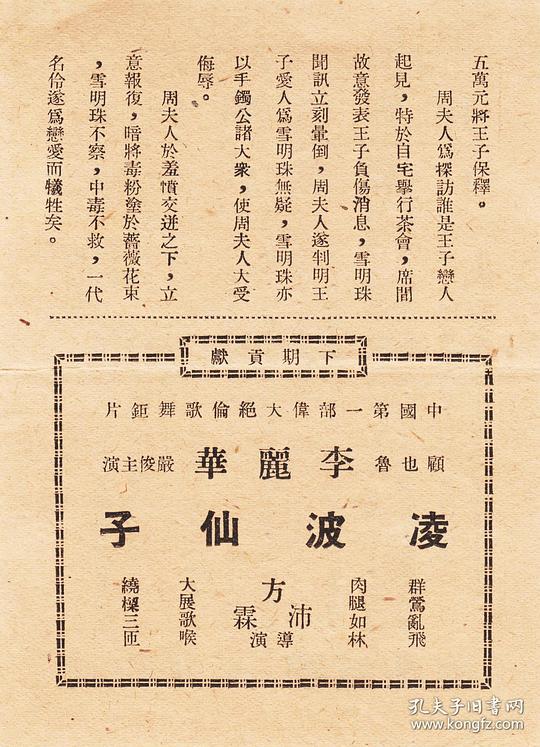 五萬元將王子保釋。
周夫人爲探訪誰是王子戀人
起見，特於自宅舉行茶會，席間
故意發表王子負傷消息，雪明珠
聞訊立刻暈倒，周夫人遂判明王
子愛人爲雪明珠無疑，雪明珠亦
以手鐲公諸大衆，使周夫人大受
侮辱。
周夫人於羞憤交迸之下，立
意報復，暗將毒粉塗於薔薇花束
，雪明珠不察，中毒不救，一代
名伶遂爲戀愛而犧牲矣。
下期貢獻
中國第一部偉大絕倫歌舞鉅片
顧也魯 李麗華 嚴俊主演
凌波仙子
群鶯亂飛
肉腿如林
方沛霖
導演
大展歌喉
繞樑三匝
孔夫子旧书网
www.kongfz.com